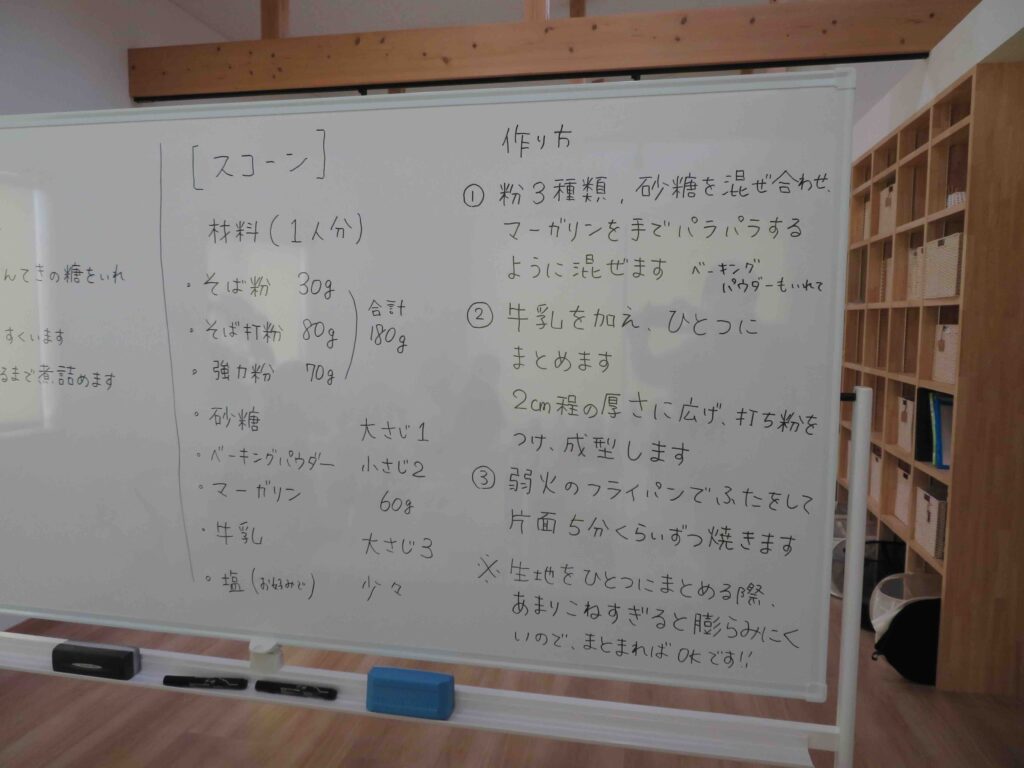 んてきの糖をいれ
すくいます
るまで煮詰めます
[スコーン]
材料(1人分)
・そば粉 30g
・そば打粉 80g
・強力粉 70g
合計
180g
・砂糖 大さじ1
・ベーキングパウダー 小さじ2
・マーガリン 60g
・牛乳 大さじ3
・塩(お好みで) 少々
作り方
① 粉3種類、砂糖を混ぜ合わせ、
マーガリンを手でパラパラする
ように混ぜます
ベーキング
パウダーもいれて
② 牛乳を加え、ひとつに
まとめます
2cm程の厚さに広げ、打ち粉を
つけ、成型します
③ 弱火のフライパンでふたをして
片面5分くらいずつ焼きます
※ 生地をひとつにまとめる際、
あまりこねすぎると膨らみにく
いので、まとまればOKです!!